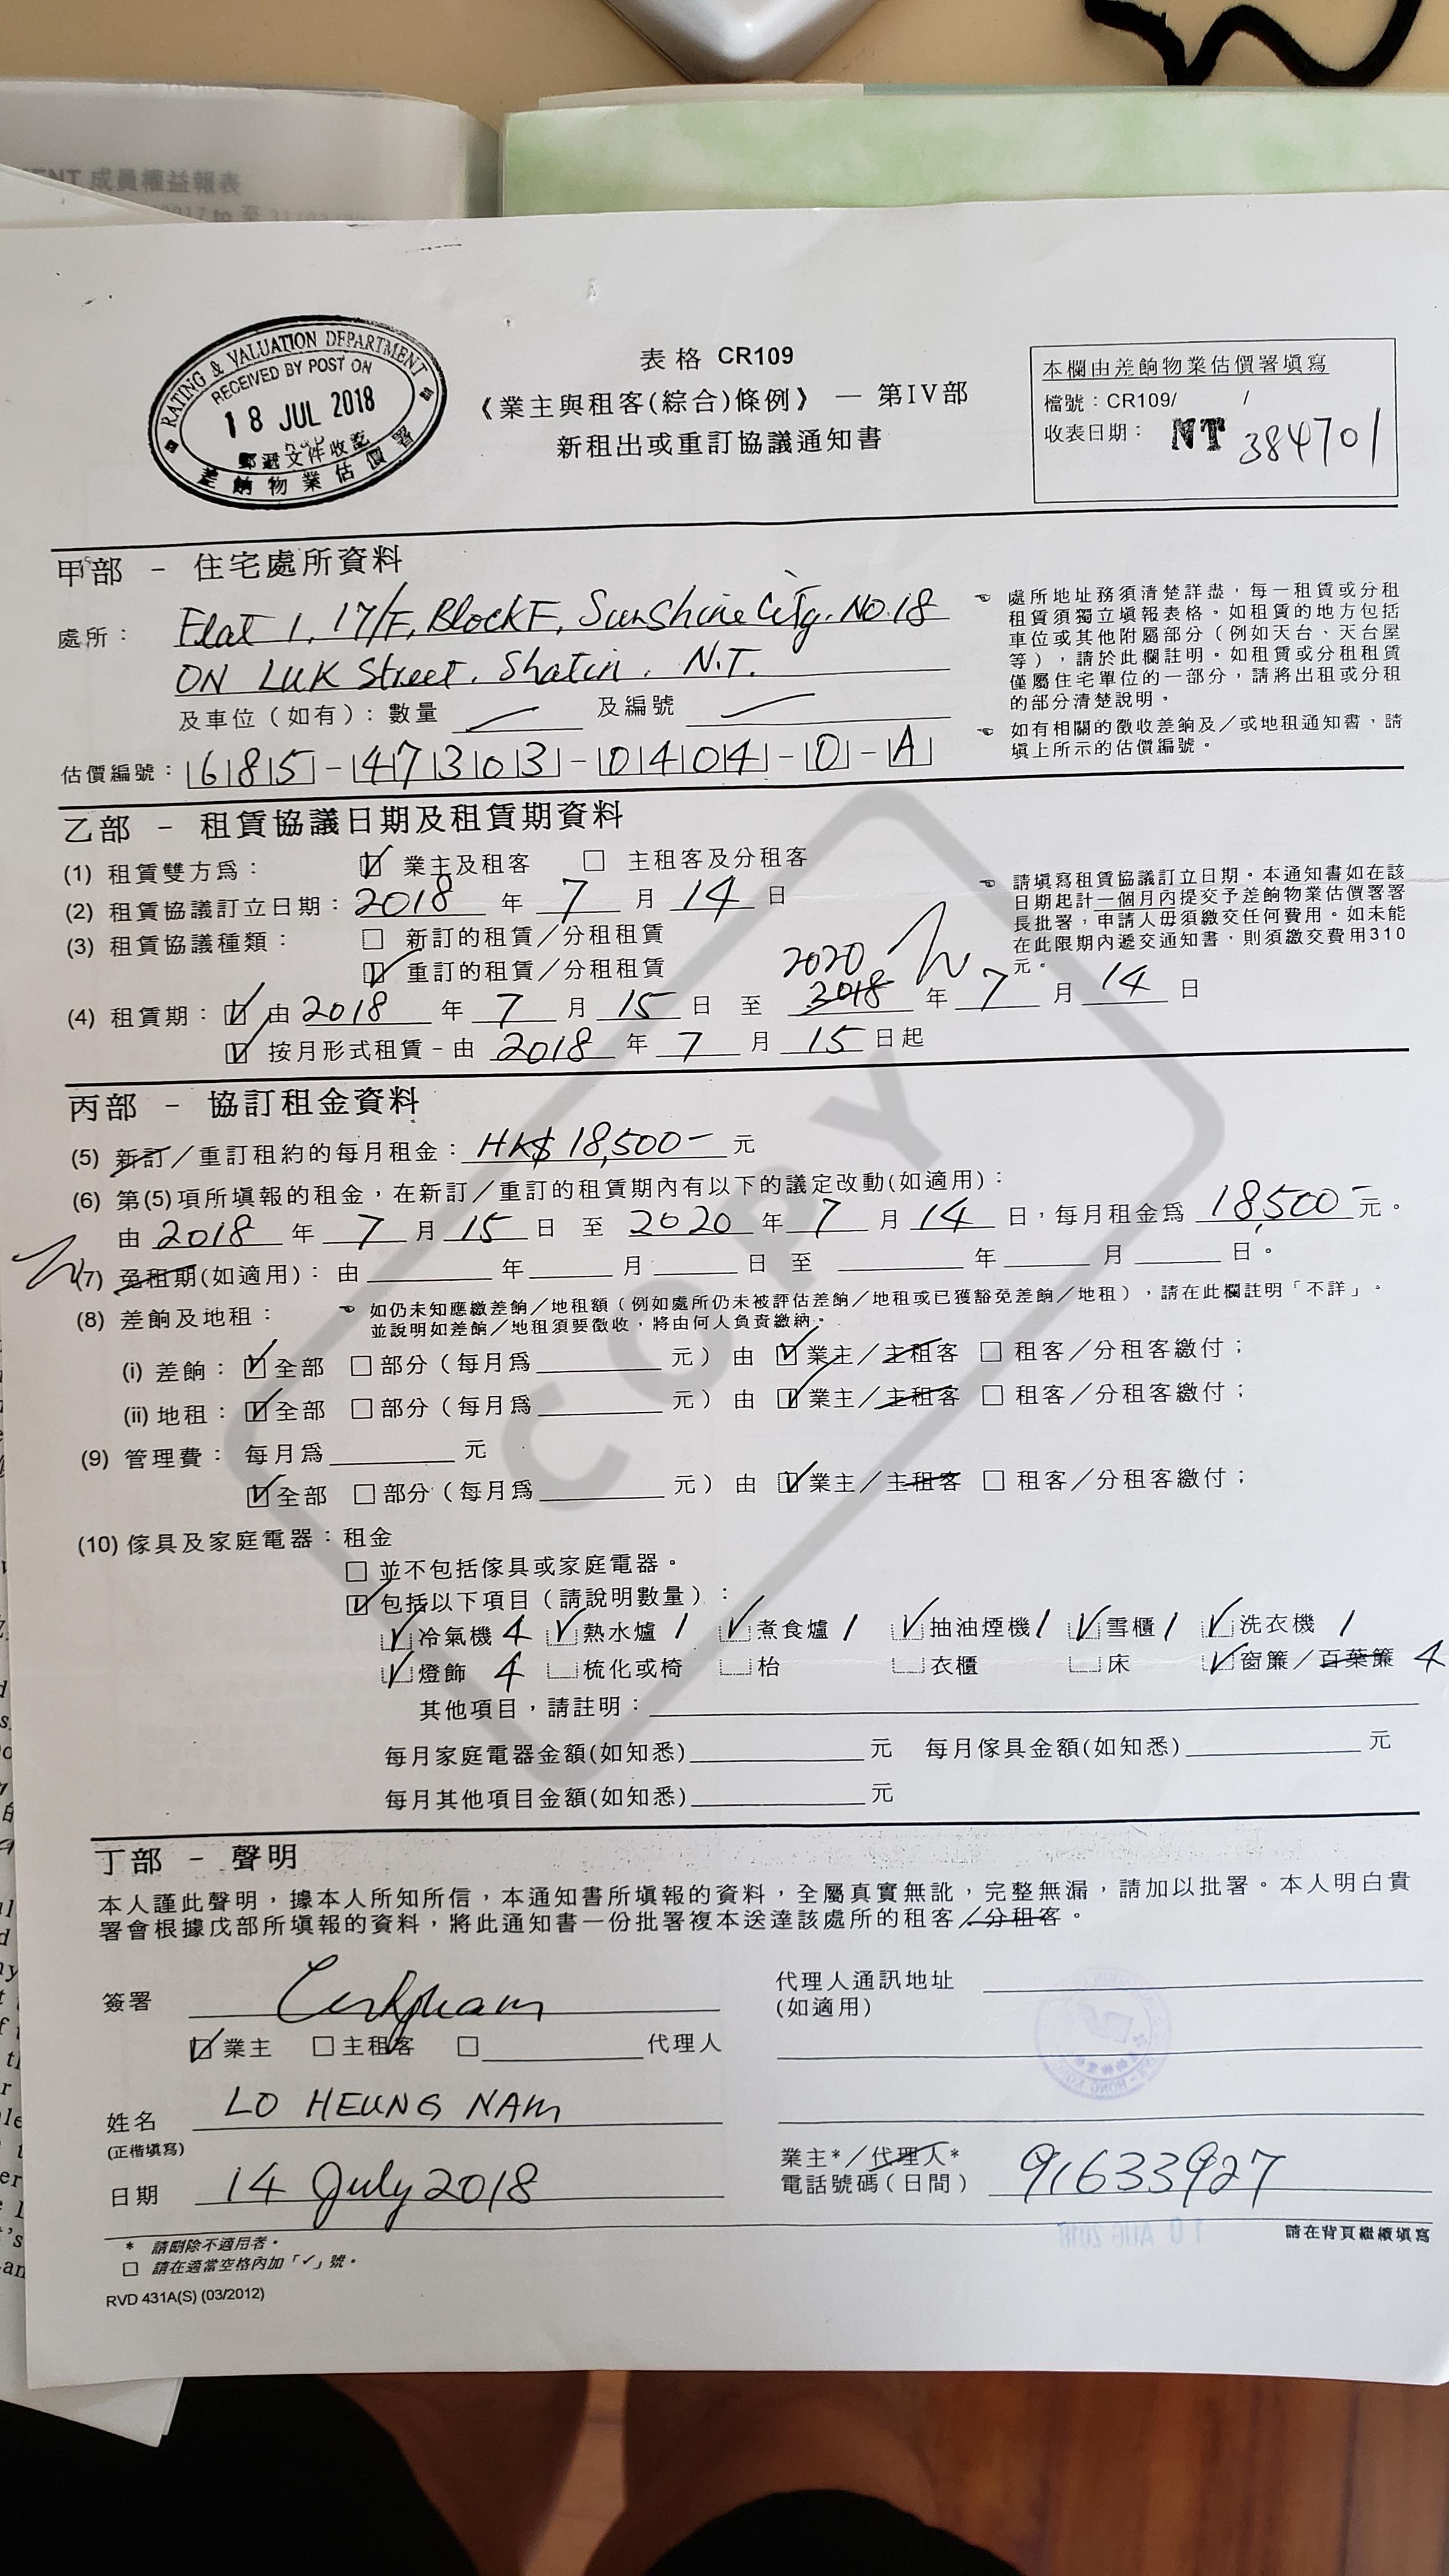 ENT 成員權益報表
2017 to 至 31/03/
RATING & VALUATION DEPARTMENT
RECEIVED BY POST ON
18 JUL 2018
郵遞文件收訖
差餉物業估價署
表格 CR109
《業主與租客(綜合)條例》 — 第IV部
新租出或重訂協議通知書
本欄由差餉物業估價署填寫
檔號：CR109/ /
收表日期： NT 384701
甲部 - 住宅處所資料
處所： Flat 1, 17/F, Block F, Sunshine City, NO.18
ON LUK Street, Shatin, N.T.
及車位（如有）：數量 及編號
估價編號： 685-47303-0404-0-A
☜ 處所地址務須清楚詳盡，每一租賃或分租
租賃須獨立填報表格。如租賃的地方包括
車位或其他附屬部分（例如天台、天台屋
等），請於此欄註明。如租賃或分租租賃
僅屬住宅單位的一部分，請將出租或分租
的部分清楚說明。
☜ 如有相關的徵收差餉及／或地租通知書，請
填上所示的估價編號。
乙部 - 租賃協議日期及租賃期資料
(1) 租賃雙方為： ☑ 業主及租客 □ 主租客及分租客
(2) 租賃協議訂立日期：2018 年 7 月 14 日
(3) 租賃協議種類： □ 新訂的租賃／分租租賃
☑ 重訂的租賃／分租租賃
☜ 請填寫租賃協議訂立日期。本通知書如在該
日期起計一個月內提交予差餉物業估價署署
長批署，申請人毋須繳交任何費用。如未能
在此限期內遞交通知書，則須繳交費用310
元。
2020
(4) 租賃期：☑ 由 2018 年 7 月 15 日 至 2018 年 7 月 14 日
☑ 按月形式租賃－由 2018 年 7 月 15 日起
丙部 - 協訂租金資料
(5) 新訂／重訂租約的每月租金：HK$ 18,500- 元
(6) 第(5)項所填報的租金，在新訂／重訂的租賃期內有以下的議定改動(如適用)：
由 2018 年 7 月 15 日 至 2020 年 7 月 14 日，每月租金為 18,500- 元。
(7) 免租期(如適用)：由 年 月 日 至 年 月 日。
(8) 差餉及地租： ☜ 如仍未知應繳差餉／地租額（例如處所仍未被評估差餉／地租或已獲豁免差餉／地租），請在此欄註明「不詳」。
並說明如差餉／地租須要徵收，將由何人負責繳納。
(i) 差餉：☑全部 □部分（每月為 元）由 ☑業主／主租客 □ 租客／分租客繳付；
(ii) 地租：☑全部 □部分（每月為 元）由 ☑業主／主租客 □ 租客／分租客繳付；
(9) 管理費： 每月為 元
☑全部 □部分（每月為 元）由 ☑業主／主租客 □ 租客／分租客繳付；
(10) 傢具及家庭電器：租金
□ 並不包括傢具或家庭電器。
☑ 包括以下項目（請說明數量）：
☑冷氣機 4 ☑熱水爐 1 ☑煮食爐 1 ☑抽油煙機 1 ☑雪櫃 1 ☑洗衣機 1
☑燈飾 4 □梳化或椅 □枱 □衣櫃 □床 ☑窗簾／百葉簾 4
其他項目，請註明：
每月家庭電器金額(如知悉) 元 每月傢具金額(如知悉) 元
每月其他項目金額(如知悉) 元
COPY
丁部 - 聲明
本人謹此聲明，據本人所知所信，本通知書所填報的資料，全屬真實無訛，完整無漏，請加以批署。本人明白貴
署會根據戊部所填報的資料，將此通知書一份批署複本送達該處所的租客／分租客。
簽署
☑業主 □主租客 □ 代理人
代理人通訊地址
(如適用)
姓名 LO HEUNG NAM
(正楷填寫)
日期 14 July 2018
業主*／代理人*
電話號碼(日間) 91633927
10 AUG 2018
* 請刪除不適用者。
□ 請在適當空格內加「✓」號。
請在背頁繼續填寫
RVD 431A(S) (03/2012)